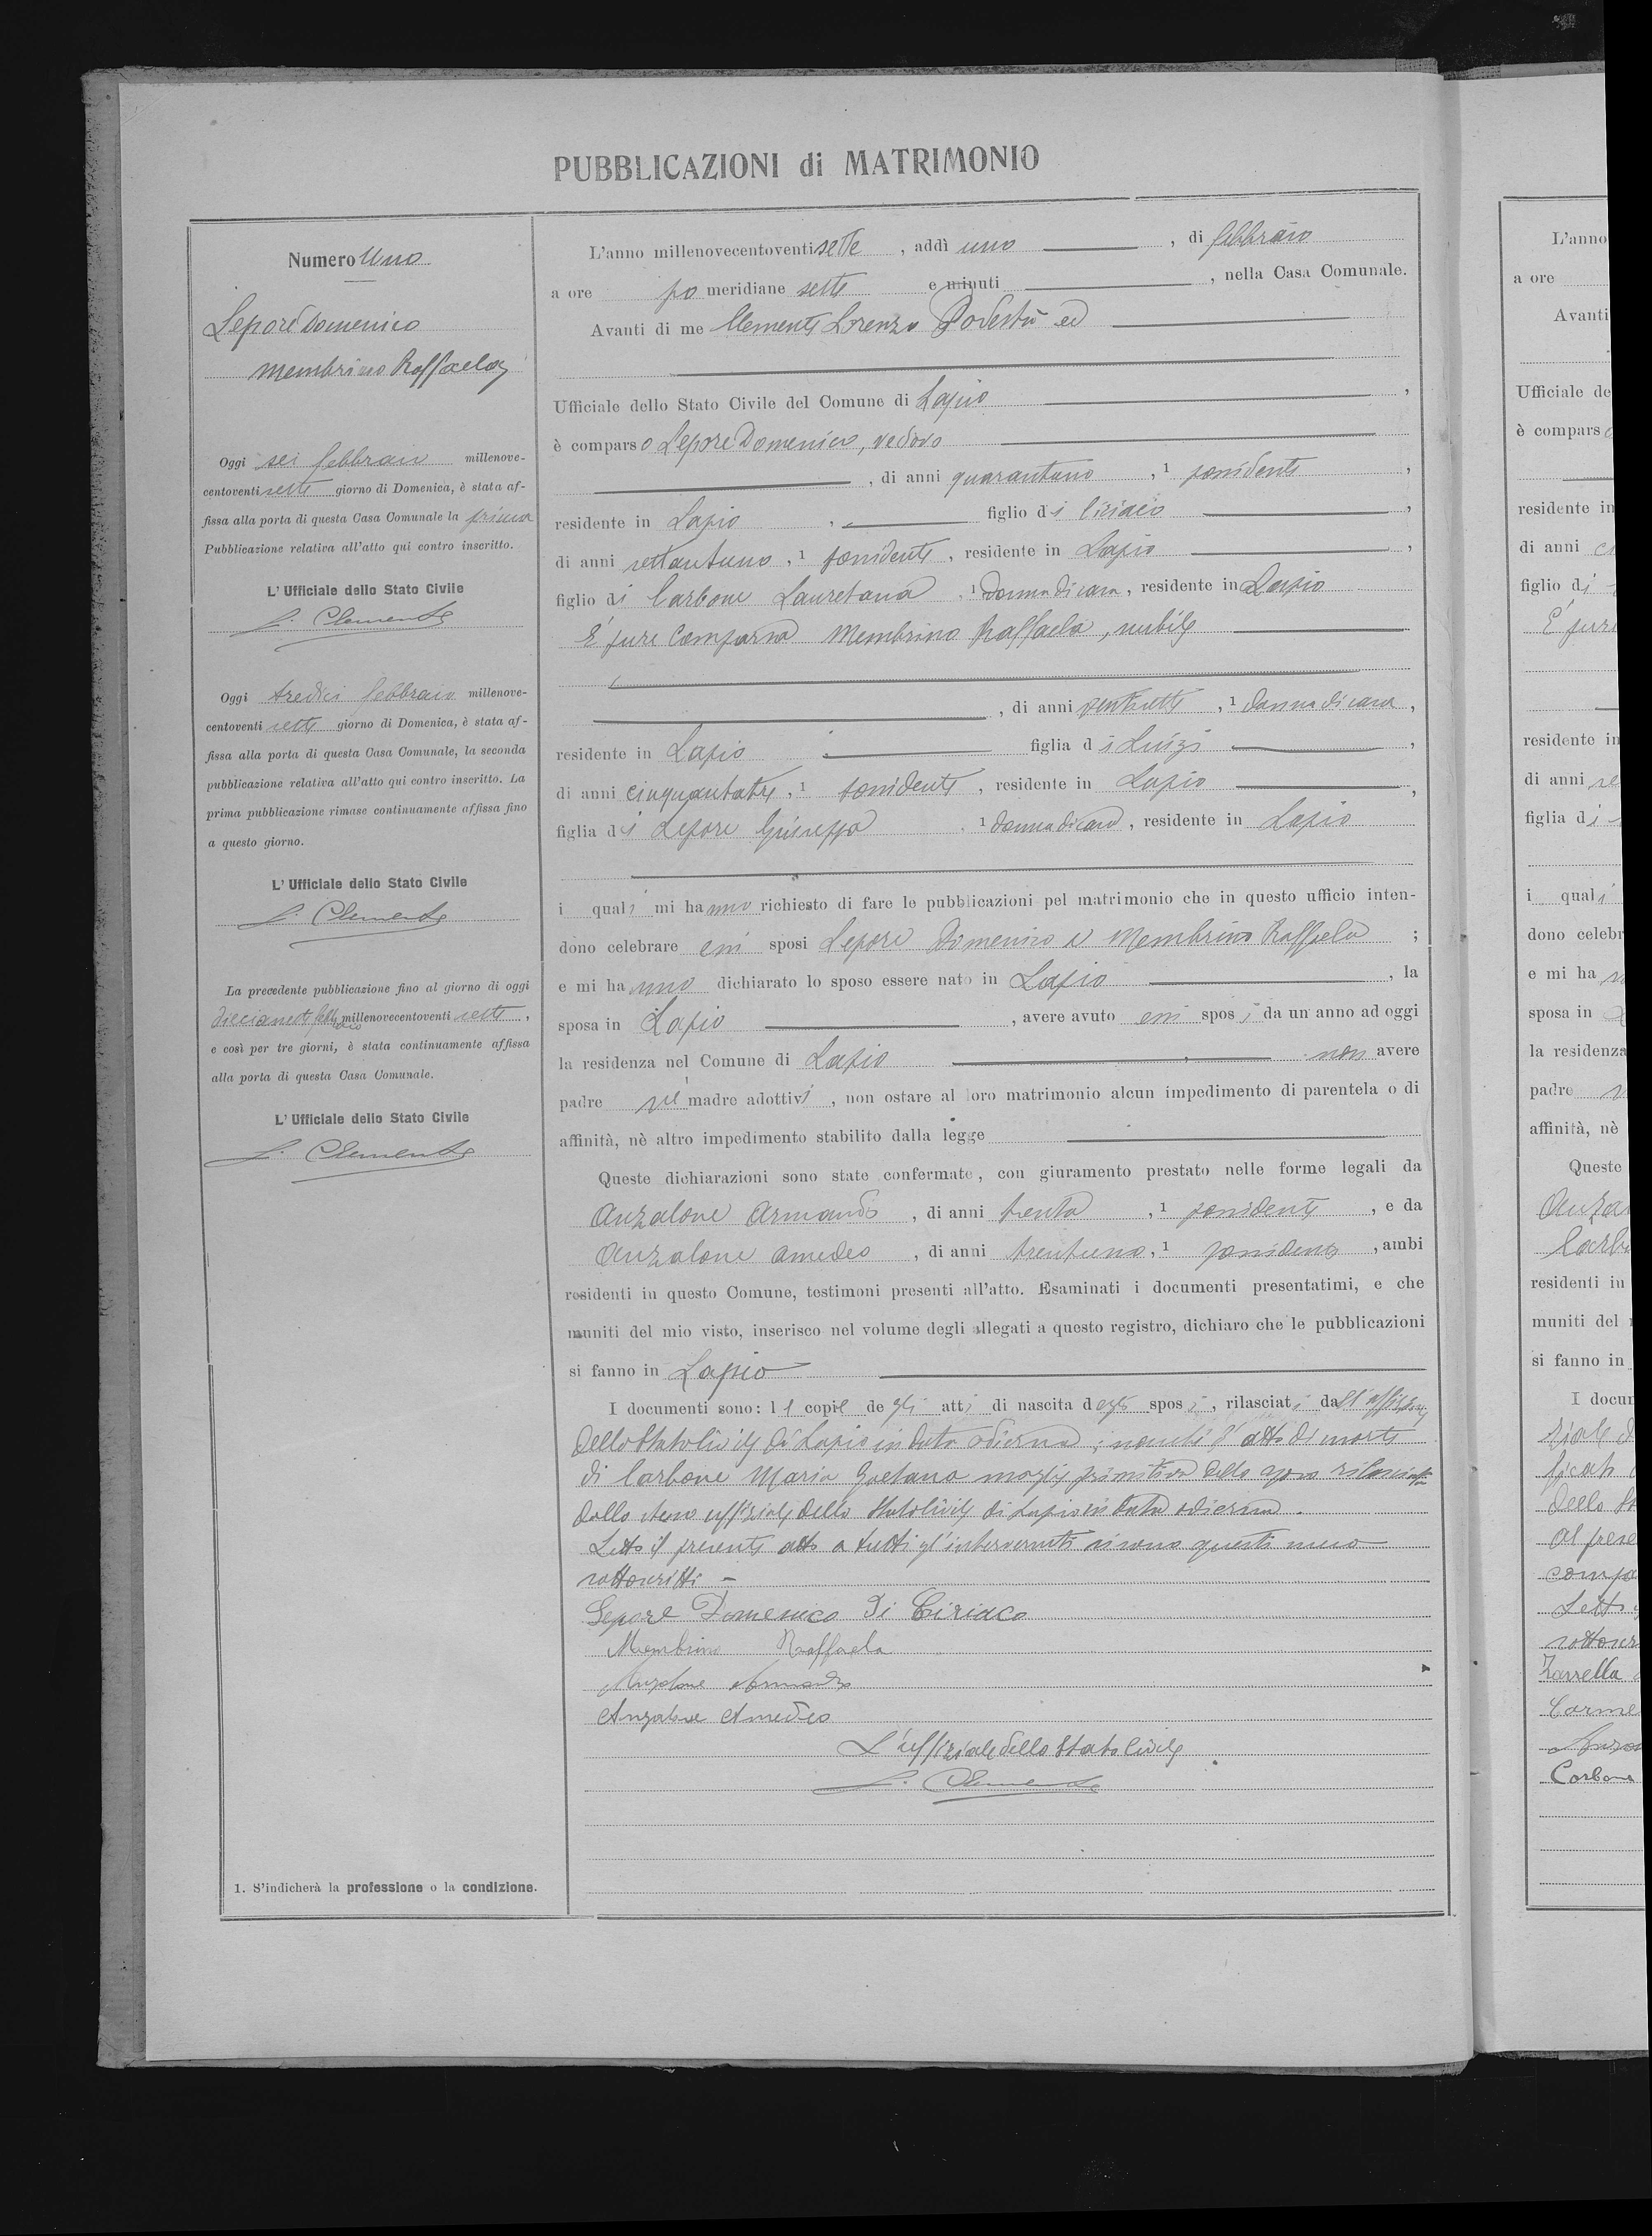 PUBBLICAZIONI di MATRIMONIO
Numero Uno
Lepore Domenico
Membrino Raffaela
Oggi sei febbraio millenove-
centoventi sette giorno di Domenica, è stata af-
fissa alla porta di questa Casa Comunale la prima
Pubblicazione relativa all'atto qui contro inscritto.
L'Ufficiale dello Stato Civile
L. Clemente
Oggi tredici febbraio millenove-
centoventi sette giorno di Domenica, è stata af-
fissa alla porta di questa Casa Comunale, la seconda
pubblicazione relativa all'atto qui contro inscritto. La
prima pubblicazione rimase continuamente affissa fino
a questo giorno.
L'Ufficiale dello Stato Civile
L. Clemente
La precedente pubblicazione fino al giorno di oggi
millenovecentoventi sette,
e così per tre giorni, è stata continuamente affissa
alla porta di questa Casa Comunale.
L'Ufficiale dello Stato Civile
L. Clemente
1. S'indicherà la professione o la condizione.
L'anno millenovecentoventi sette, addì uno, di febbraio
a ore po meridiane sette e minuti, nella Casa Comunale.
Avanti di me Clemente Lorenzo Podestà ed
Ufficiale dello Stato Civile del Comune di Lapio,
è comparso Lepore Domenico, vedovo
, di anni quarantuno, 1 possidente,
residente in Lapio, figlio di Ciriaco,
di anni settantuno, 1 possidente, residente in Lapio,
figlio di Carbone Lauretana, 1 donna di casa, residente in Lapio
È pure comparsa Membrino Raffaela, nubile
, di anni ventisette, 1 donna di casa,
residente in Lapio, figlia di Luigi,
di anni cinquantatre, 1 possidente, residente in Lapio,
figlia di Lepore Giuseppa, 1 donna di casa, residente in Lapio
i quali mi hanno richiesto di fare le pubblicazioni pel matrimonio che in questo ufficio inten-
dono celebrare essi sposi Lepore Domenico e Membrino Raffaela;
e mi hanno dichiarato lo sposo essere nato in Lapio, la
sposa in Lapio, avere avuto essi sposi da un anno ad oggi
la residenza nel Comune di Lapio, non avere
padre nè madre adottivi, non ostare al loro matrimonio alcun impedimento di parentela o di
affinità, nè altro impedimento stabilito dalla legge
Queste dichiarazioni sono state confermate, con giuramento prestato nelle forme legali da
Anzalone Armando, di anni trenta, 1 possidente, e da
Anzalone Amedeo, di anni trentuno, 1 possidente, ambi
residenti in questo Comune, testimoni presenti all'atto. Esaminati i documenti presentatimi, e che
muniti del mio visto, inserisco nel volume degli allegati a questo registro, dichiaro che le pubblicazioni
si fanno in Lapio
I documenti sono: le copie degli atti di nascita degli sposi, rilasciati dall'ufficiale
dello Stato Civile di Lapio in data odierna; nonché l'atto di morte
di Carbone Maria Gaetana moglie primitiva dello sposo rilasciato
dallo stesso ufficiale dello Stato Civile di Lapio in data odierna.
Letto il presente atto a tutti gl'intervenuti si sono questi meco
sottoscritti –
Lepore Domenico di Ciriaco
Membrino Raffaela
Anzalone Armando
Anzalone Amedeo
L'ufficiale dello Stato Civile
L. Clemente
L'anno
a ore
Avanti
Ufficiale de
è compars
residente in
di anni
figlio di
È pure
residente in
di anni
figlia di
i quali
dono celebr
e mi ha
sposa in
la residenza
padre
affinità, nè
Queste
Anza
Carb
residenti in
muniti del
si fanno in
I docum
dello St
Zarrella
Carme
Carbone